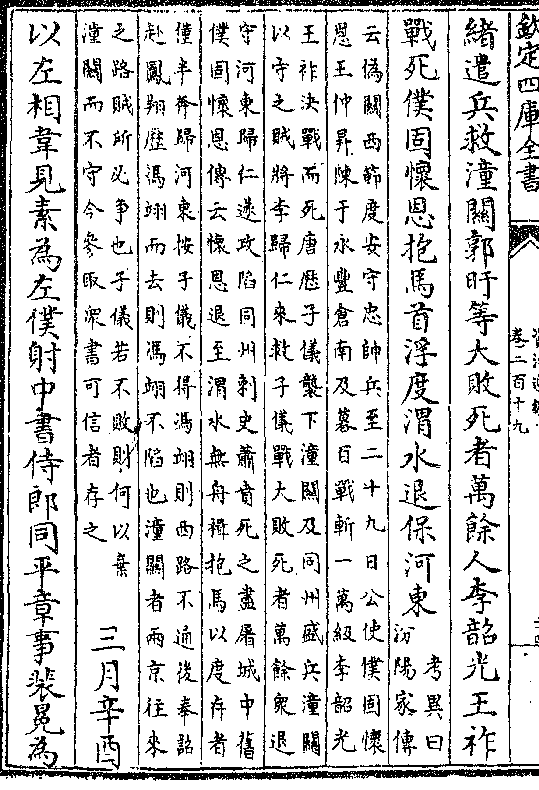 欽定四庫全書
卷二百十九
緒遣兵救潼關郭旰等大敗死者萬餘人李韶光王祚
戰死僕固懷恩抱馬首浮度渭水退保河東
考異曰
汾陽家傳
云偽關西節度安守忠帥兵至二十九日公使僕固懷
恩王仲昇陳于永豐倉南及暮百戰斬一萬級李韶光
王祚決戰而死唐歷子儀襲下潼關及同州盛兵潼關
以守之賊將李歸仁來救子儀戰大敗死者萬餘衆退
守河東歸仁遂攻陷同州刺史蕭賁死之盡屠城中舊
僕固懷恩傳云懷恩退至渭水無舟楫抱馬以度存者
僅半奔歸河東按子儀不得馮翊則西路不通後奉詔
赴鳳翔歷馮翊而去則馮翊不陷也潼關者兩京往來
之路賊所必爭也子儀若不敗則何以棄
潼關而不守今參取衆書可信者存之
三月辛酉
以左相韋見素為左僕射中書侍郎同平章事裴冕為